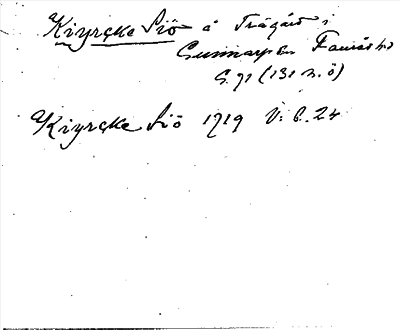 Kiyrcke Siö å Trägård i
Gunnarp sn Faurås hd
S. 91 (131 n. ö)
Kiyrcke Siö 1719 V: 6. 24